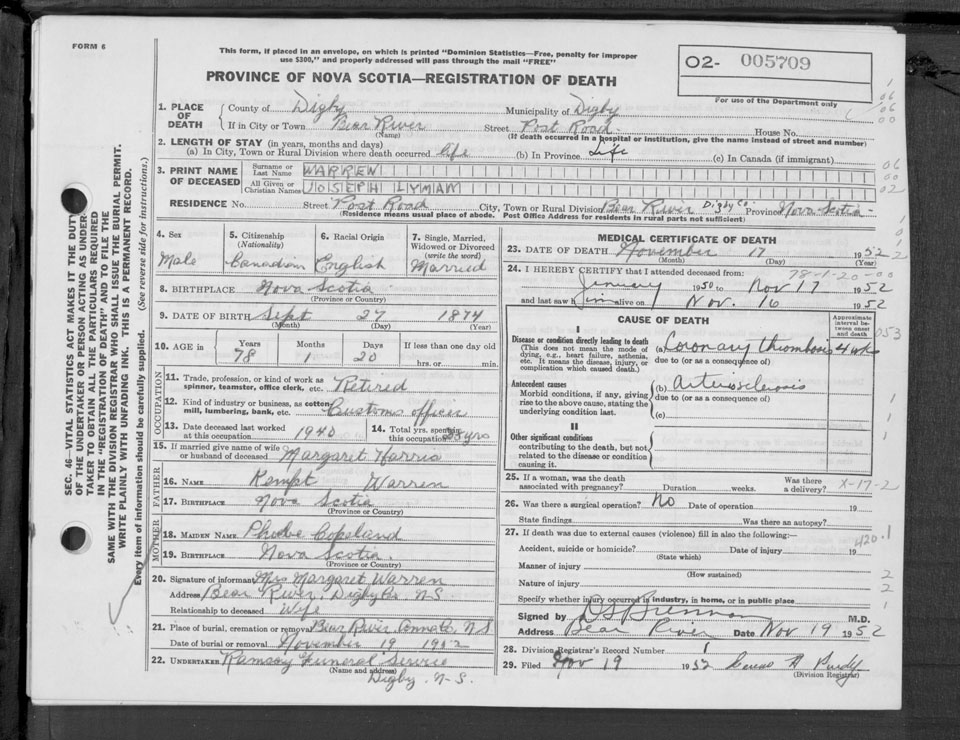 FORM 6
This form, if placed in an envelope, on which is printed "Dominion Statistics—Free, penalty for improper
use $300," and properly addressed will pass through the mail "FREE"
PROVINCE OF NOVA SCOTIA—REGISTRATION OF DEATH
02- 005709
For use of the Department only
1. PLACE OF DEATH
County of Digby Municipality of Digby
If in City or Town Bear River (Name) Street Post Road House No.
(If death occurred in a hospital or institution, give the name instead of street and number)
2. LENGTH OF STAY (in years, months and days)
(a) In City, Town or Rural Division where death occurred life (b) In Province Life (c) In Canada (if immigrant)
3. PRINT NAME OF DECEASED
Surname or Last Name WARREN
All Given or Christian Names JOSEPH LYMAM
RESIDENCE No. Street Post Road City, Town or Rural Division Bear River Digby Co. Province Nova Scotia
(Residence means usual place of abode. Post Office Address for residents in rural parts not sufficient)
4. Sex Male
5. Citizenship (Nationality) Canadian
6. Racial Origin English
7. Single, Married, Widowed or Divorced (write the word) Married
8. BIRTHPLACE Nova Scotia
(Province or Country)
9. DATE OF BIRTH Sept 27 1874
(Month) (Day) (Year)
10. AGE in Years 78 Months 1 Days 20 If less than one day old hrs. or min.
OCCUPATION
11. Trade, profession, or kind of work as spinner, teamster, office clerk, etc. Retired
12. Kind of industry or business, as cotton-mill, lumbering, bank, etc. Customs officer
13. Date deceased last worked at this occupation 1940
14. Total yrs. spent in this occupation 28 yrs
15. If married give name of wife or husband of deceased Margaret Harris
FATHER
16. NAME Kempt Warren
17. BIRTHPLACE Nova Scotia
(Province or Country)
MOTHER
18. MAIDEN NAME Phoebe Copeland
19. BIRTHPLACE Nova Scotia.
(Province or Country)
20. Signature of informant Mrs Margaret Warren
Address Bear River, Digby Co. N-S.
Relationship to deceased Wife
21. Place of burial, cremation or removal Bear River, N.S.
Date of burial or removal November 19 1952
22. UNDERTAKER Ramsay Funeral Service
(Name and address)
Digby. N-S.
MEDICAL CERTIFICATE OF DEATH
23. DATE OF DEATH November 17 1952
(Month) (Day) (Year)
78-1-20-00
24. I HEREBY CERTIFY that I attended deceased from:
January 1950 to Nov 17 1952
and last saw him alive on Nov. 16 1952
CAUSE OF DEATH
Approximate interval between onset and death
I
Disease or condition directly leading to death
(This does not mean the mode of dying, e.g., heart failure, asthenia, etc. It means the disease, injury, or complication which caused death.)
(a) Coronary thrombosis 4 wks
due to (or as a consequence of)
Antecedent causes
Morbid conditions, if any, giving rise to the above cause, stating the underlying condition last.
(b) Arteriosclerosis
due to (or as a consequence of)
(c)
II
Other significant conditions
contributing to the death, but not related to the disease or condition causing it.
25. If a woman, was the death associated with pregnancy? Duration weeks. Was there a delivery? X-17-2
26. Was there a surgical operation? No Date of operation 19
State findings Was there an autopsy?
27. If death was due to external causes (violence) fill in also the following:—
420.1
Accident, suicide or homicide? (State which) Date of injury 19
Manner of injury
(How sustained)
Nature of injury
Specify whether injury occurred in industry, in home, or in public place
Signed by D S Brennan M.D.
Address Bear River Date Nov 19 1952
28. Division Registrar's Record Number 1
29. Filed Nov 19 1952 A Purdy
(Division Registrar)
SEC. 46—VITAL STATISTICS ACT MAKES IT THE DUTY
OF THE UNDERTAKER OR PERSON ACTING AS UNDER-
TAKER TO OBTAIN ALL THE PARTICULARS REQUIRED
IN THE "REGISTRATION OF DEATH" AND TO FILE THE
SAME WITH THE DIVISION REGISTRAR WHO SHALL ISSUE THE BURIAL PERMIT.
WRITE PLAINLY WITH UNFADING INK. THIS IS A PERMANENT RECORD.
Every item of information should be carefully supplied. (See reverse side for instructions.)